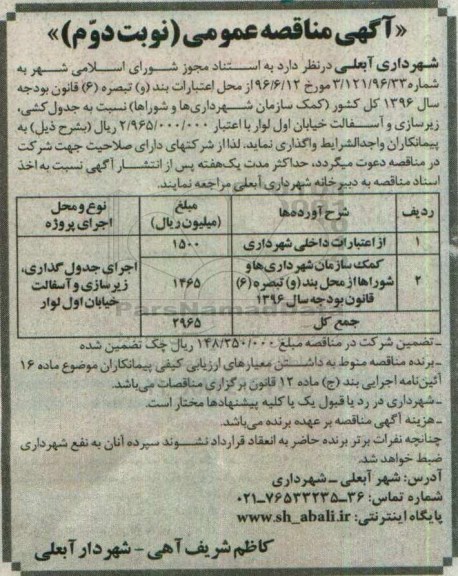 «آگهی مناقصه عمومی (نوبت دوّم)»
شهرداری آبعلی درنظر دارد به استناد مجوز شورای اسلامی شهر به
شماره ۳/۱۲۱/۹۶/۳۳ مورخ ۹۶/۶/۱۲ از محل اعتبارات بند (و) تبصره (۶) قانون بودجه
سال ۱۳۹۶ کل کشور (کمک سازمان شهرداری‌ها و شوراها) نسبت به جدول کشی،
زیرسازی و آسفالت خیابان اول لوار با اعتبار ۲/۹۶۵/۰۰۰/۰۰۰ ریال (بشرح ذیل) به
پیمانکاران واجدالشرایط واگذاری نماید، لذا از شرکتهای دارای صلاحیت جهت شرکت
در مناقصه دعوت میگردد، حداکثر مدت یک‌هفته پس از انتشار آگهی نسبت به اخذ
اسناد مناقصه به دبیرخانه شهرداری آبعلی مراجعه نمایند.
ردیف شرح آورده‌ها مبلغ (میلیون ریال) نوع و محل اجرای پروژه
۱ از اعتبارات داخلی شهرداری ۱۵۰۰
۲ کمک سازمان شهرداری‌ها و شوراها از محل بند (و) تبصره (۶) قانون بودجه سال ۱۳۹۶ ۱۴۶۵ اجرای جدول گذاری، زیرسازی و آسفالت خیابان اول لوار
جمع کل ۲۹۶۵
ـ تضمین شرکت در مناقصه مبلغ ۱۴۸/۲۵۰/۰۰۰ ریال چک تضمین شده
ـ برنده مناقصه منوط به داشتن معیارهای ارزیابی کیفی پیمانکاران موضوع ماده ۱۶
آئین‌نامه اجرایی بند (ج) ماده ۱۲ قانون برگزاری مناقصات می‌باشد.
ـ شهرداری در رد یا قبول یک یا کلیه پیشنهادها مختار است.
ـ هزینه آگهی مناقصه بر عهده برنده می‌باشد.
چنانچه نفرات برتر برنده حاضر به انعقاد قرارداد نشوند سپرده آنان به نفع شهرداری
ضبط خواهد شد.
آدرس: شهر آبعلی ـ شهرداری
شماره تماس: ۳۶ـ۷۶۵۳۳۲۳۵ـ۰۲۱
پایگاه اینترنتی: www.sh_abali.ir
کاظم شریف آهی - شهردار آبعلی